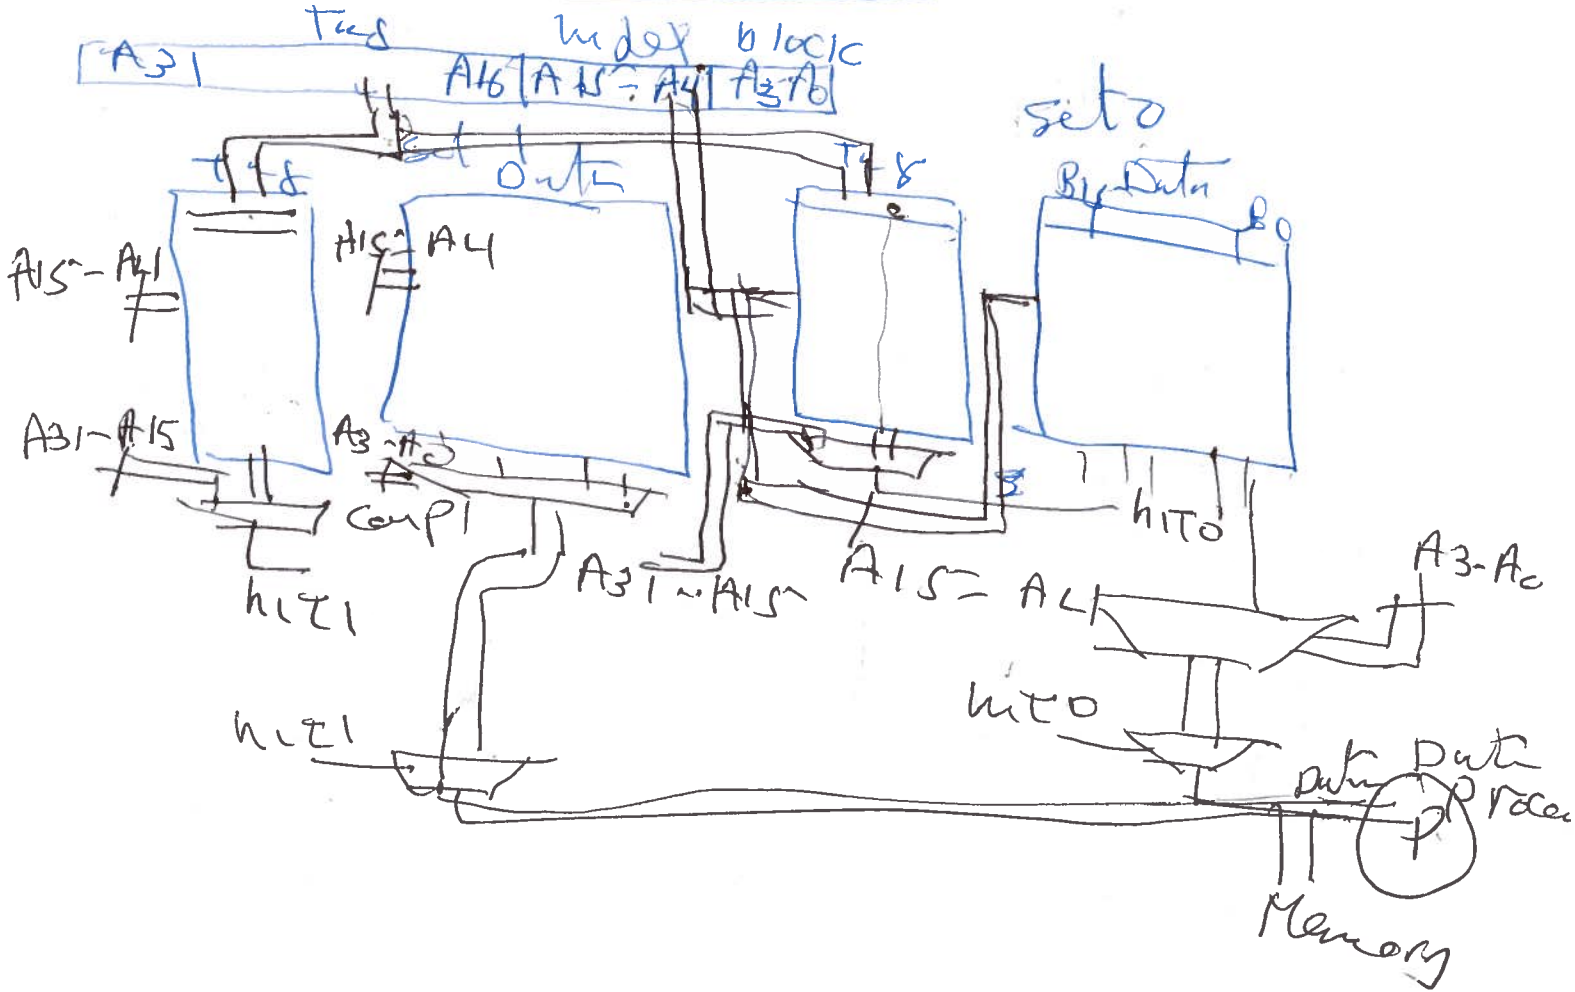 Index block
A31 A16 A15-A4 A3-A0
set 0
Set
Data
Data
B0
A15-A4
A15-A4
A31-A15
A3-A0
comp1
hit1
A31-A15
A15-A4
hit0
A3-A0
hit1
hit0
Data Data
P
Memory